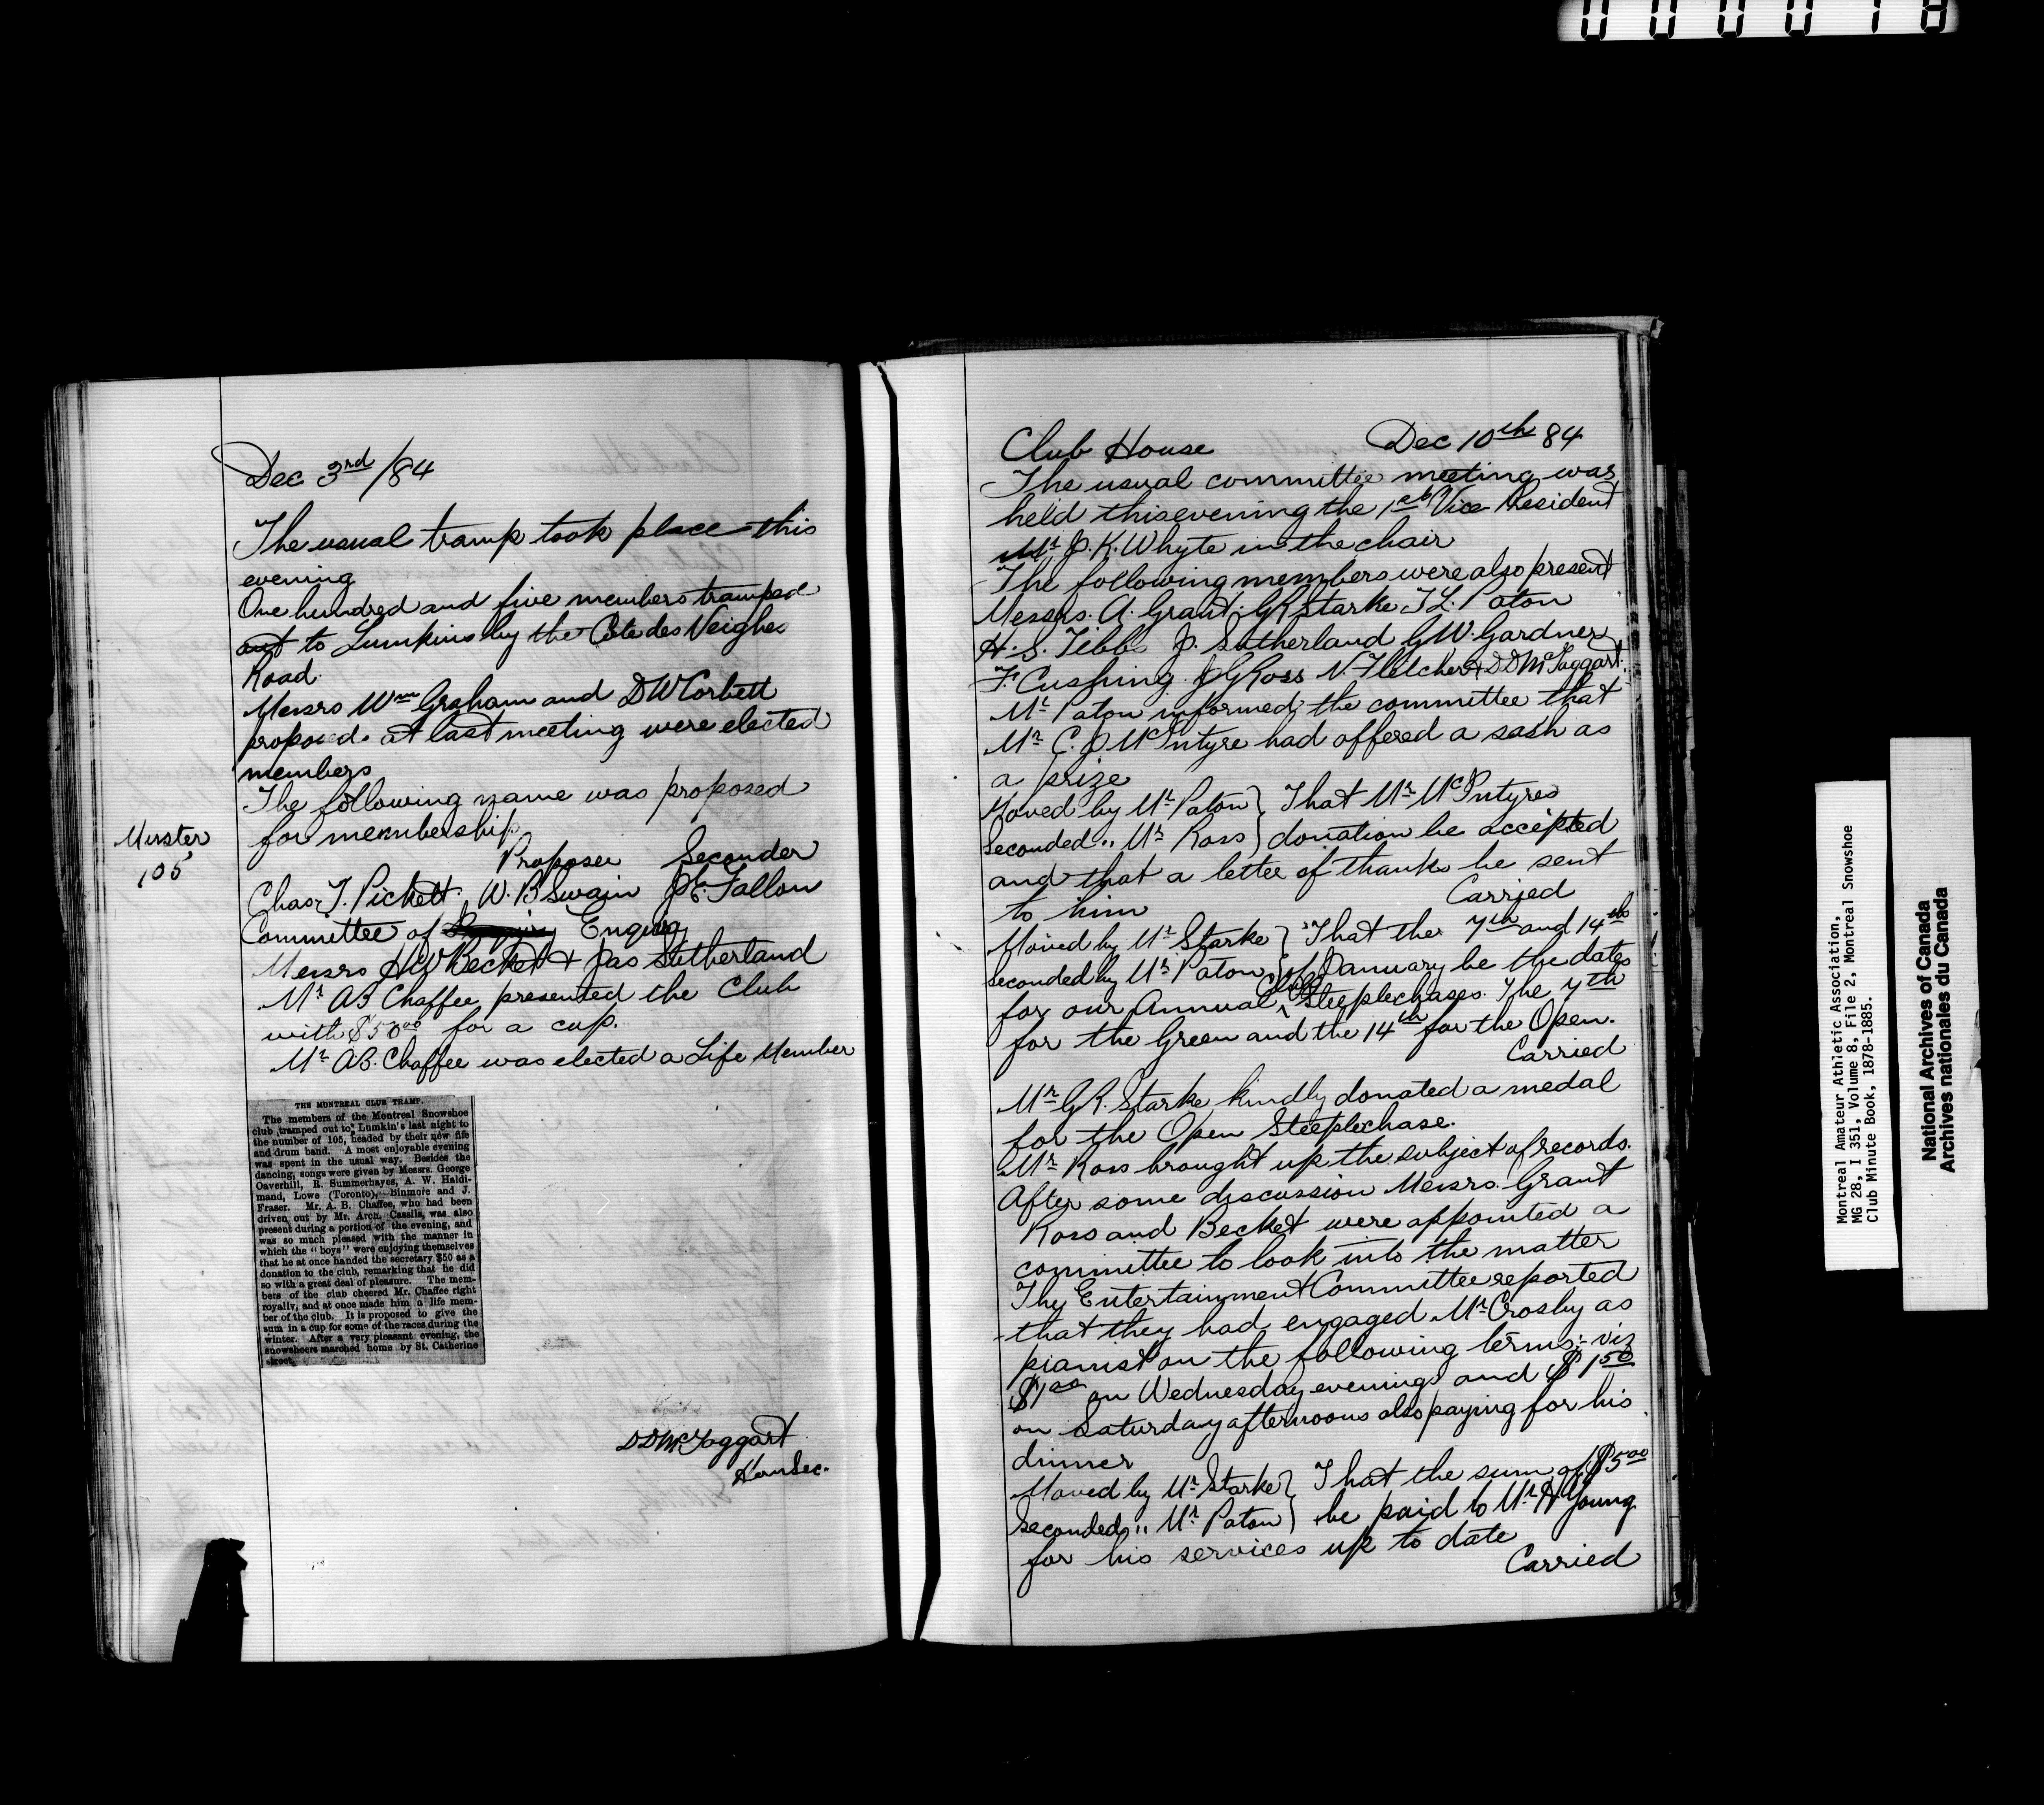 0 0 0 0 1 8
Dec 3rd /84
The usual tramp took place this
evening
One hundred and five members tramped
out to Lumkins by the Cote des Neighes
Road.
Messrs Wm Graham and D W Corbett
proposed at last meeting were elected
members
The following name was proposed
for membership
Muster
105
Proposer Seconder
Chas T. Pickett. W. B Swain J E. Fallon
Committee of Enquiry
Messrs H W Becket + Jas Sutherland
Mr AB Chaffee presented the Club
with $50.00 for a cup.
Mr AB. Chaffee was elected a Life Member
THE MONTREAL CLUB TRAMP.
The members of the Montreal Snowshoe
club tramped out to Lumkin's last night to
the number of 105, headed by their new fife
and drum band. A most enjoyable evening
was spent in the usual way. Besides the
dancing, songs were given by Messrs. George
Oaverhill, R. Summerhayes, A. W. Haldi-
mand, Lowe (Toronto), Binmore and J.
Fraser. Mr. A. B. Chaffee, who had been
driven out by Mr. Arch. Cassils, was also
present during a portion of the evening, and
was so much pleased with the manner in
which the "boys" were enjoying themselves
that he at once handed the secretary $50 as a
donation to the club, remarking that he did
so with a great deal of pleasure. The mem-
bers of the club cheered Mr. Chaffee right
royally, and at once made him a life mem-
ber of the club. It is proposed to give the
sum in a cup for some of the races during the
winter. After a very pleasant evening, the
snowshoers marched home by St. Catherine
street.
DD McTaggart
Hon Sec.
Club House Dec 10th 84
The usual committee meeting was
held this evening the 1st Vice President
Mr J. K. Whyte in the chair
The following members were also present
Messrs. A. Grant. GR Starke T L. Paton
H. S. Tibbs J. Sutherland G W. Gardner
F. Cushing. J G Ross N. Fletcher & DD McTaggart.
Mr Paton informed the committee that
Mr C. J McIntyre had offered a sash as
a prize
Moved by Mr Paton } That Mr McIntyres
Seconded " Mr Ross } donation be accepted
and that a letter of thanks be sent
to him Carried
Moved by Mr Starke } That the 7th and 14th
seconded by Mr Paton } of January be the dates
for our Annual Club Steeplechases. The 7th
for the Green and the 14th for the Open.
Carried
Mr GR. Starke kindly donated a medal
for the Open Steeplechase.
Mr Ross brought up the subject of records.
After some discussion Messrs. Grant
Ross and Becket were appointed a
committee to look into the matter
The Entertainment Committee reported
that they had engaged Mr Crosby as
pianist on the following terms:- viz
$1.00 on Wednesday evenings and $1.50
on Saturday afternoons also paying for his
dinner
Moved by Mr Starke } That the sum of $5.00
Seconded " Mr Paton } be paid to Mr H Young
for his services up to date
Carried
Montreal Amateur Athletic Association,
MG 28, I 351, Volume 8, File 2, Montreal Snowshoe
Club Minute Book, 1878-1885.
National Archives of Canada
Archives nationales du Canada